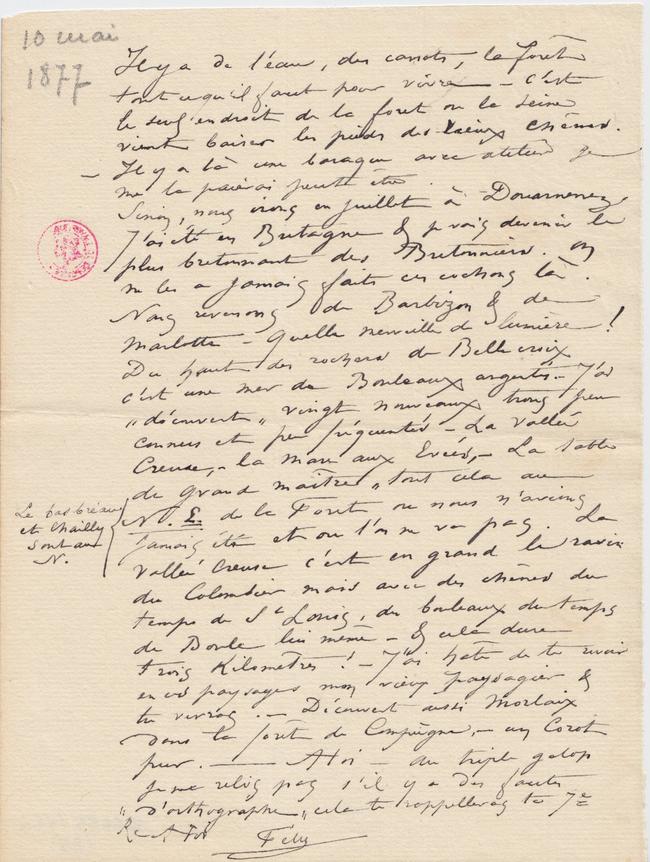 10 mai
1877
Il y a de l'eau, des canots, la forêt
tout ce qu'il faut pour vivre — c'est
le seul endroit de la foret ou la Seine
vient baiser les pieds des vieux chênes.
— Il y a là une baraque avec atelier que je
me la paierai peut être.
Sinon, nous irons en juillet à Douarnenez
J'ai été en Bretagne & je vais devenir le
plus bretonnant des Bretonniers. on
ne les a jamais faits ces cochons là.
Nous revenons de Barbizon & de
Marlotte — Quelle merveille de lumière !
Du haut des rochers de Belle croix
c'est une mer de Bouleaux argentés — J'ai
"découvert" vingt nouveaux trous peu
connus et peu fréquentés — La Vallée
Creuse, — la Mare aux Evées, — La table
du Grand maître, tout cela au
N. E. de la Foret ou nous n'avions
Le bas bréau
et Chailly
sont au
N.
jamais été et ou l'on ne va pas. La
Vallée Creuse c'est en grand le ravin
du Colombier mais avec des chênes du
temps de St Louis, des bouleaux du temps
de Boule lui même — & cela dure
trois Kilomètres ! — J'ai hâte de te revoir
en vos paysages mon vieux paysagier &
tu verras. — Découvert aussi Morlaix
dans la forêt de Compiègne, — un Corot
pur. — A toi — au triple galop
je ne relis pas s'il y a des fautes
"d'orthographe" cela te rappellera ta 7e
Fély